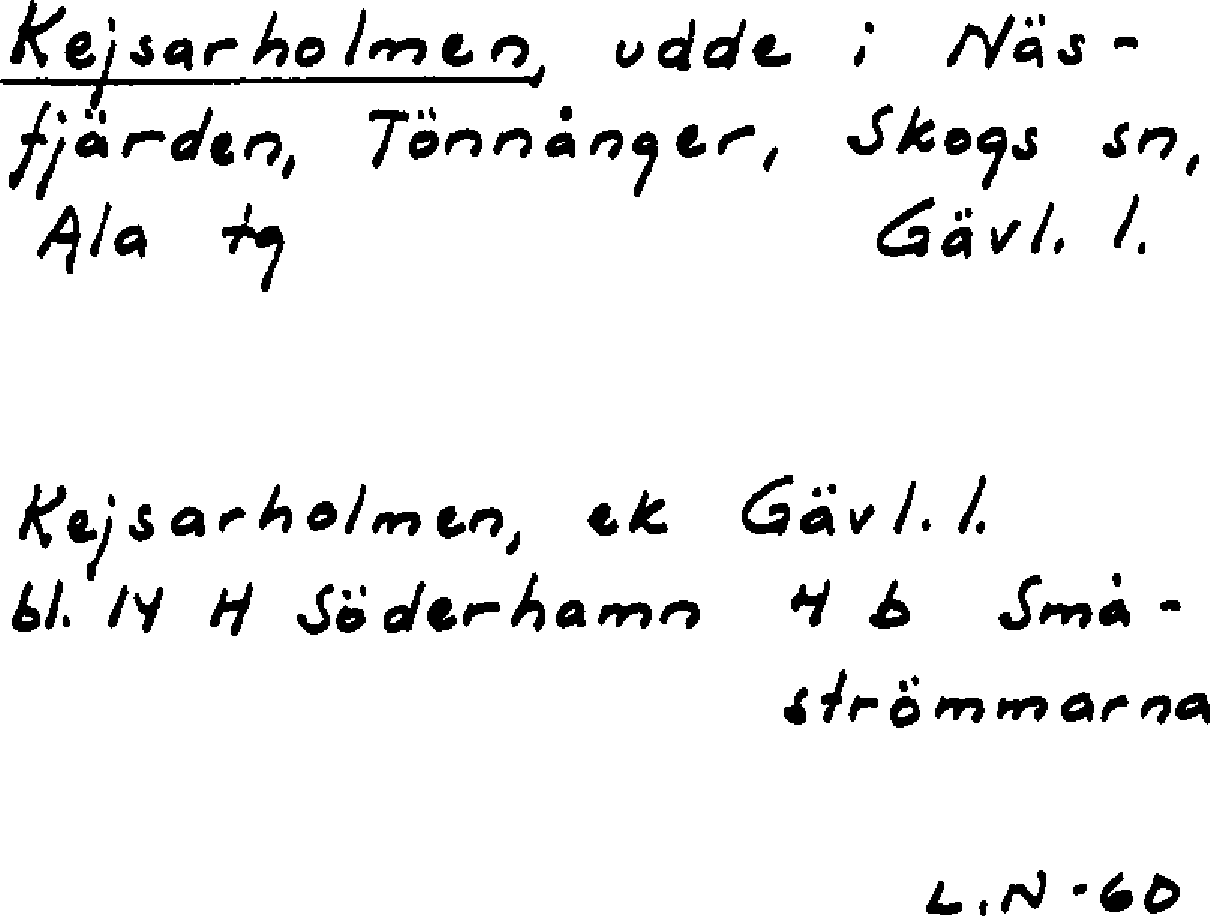 Kejsarholmen, udde i Näs-
fjärden, Tönnånger, Skogs sn,
Ala tg Gävl. l.
Kejsarholmen, ek Gävl. l.
bl. 14 H Söderhamn 4 b Små-
strömmarna
L.N-60